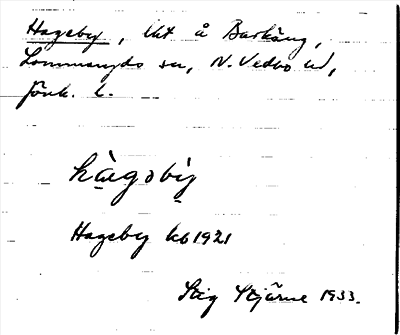 Hageby, lht å Barkäng,
Lommaryds sn, N. Vedbo hd,
Jönk. l.
hàgəbi̯y
Hageby kb 1921
Stig Stjärne 1933.